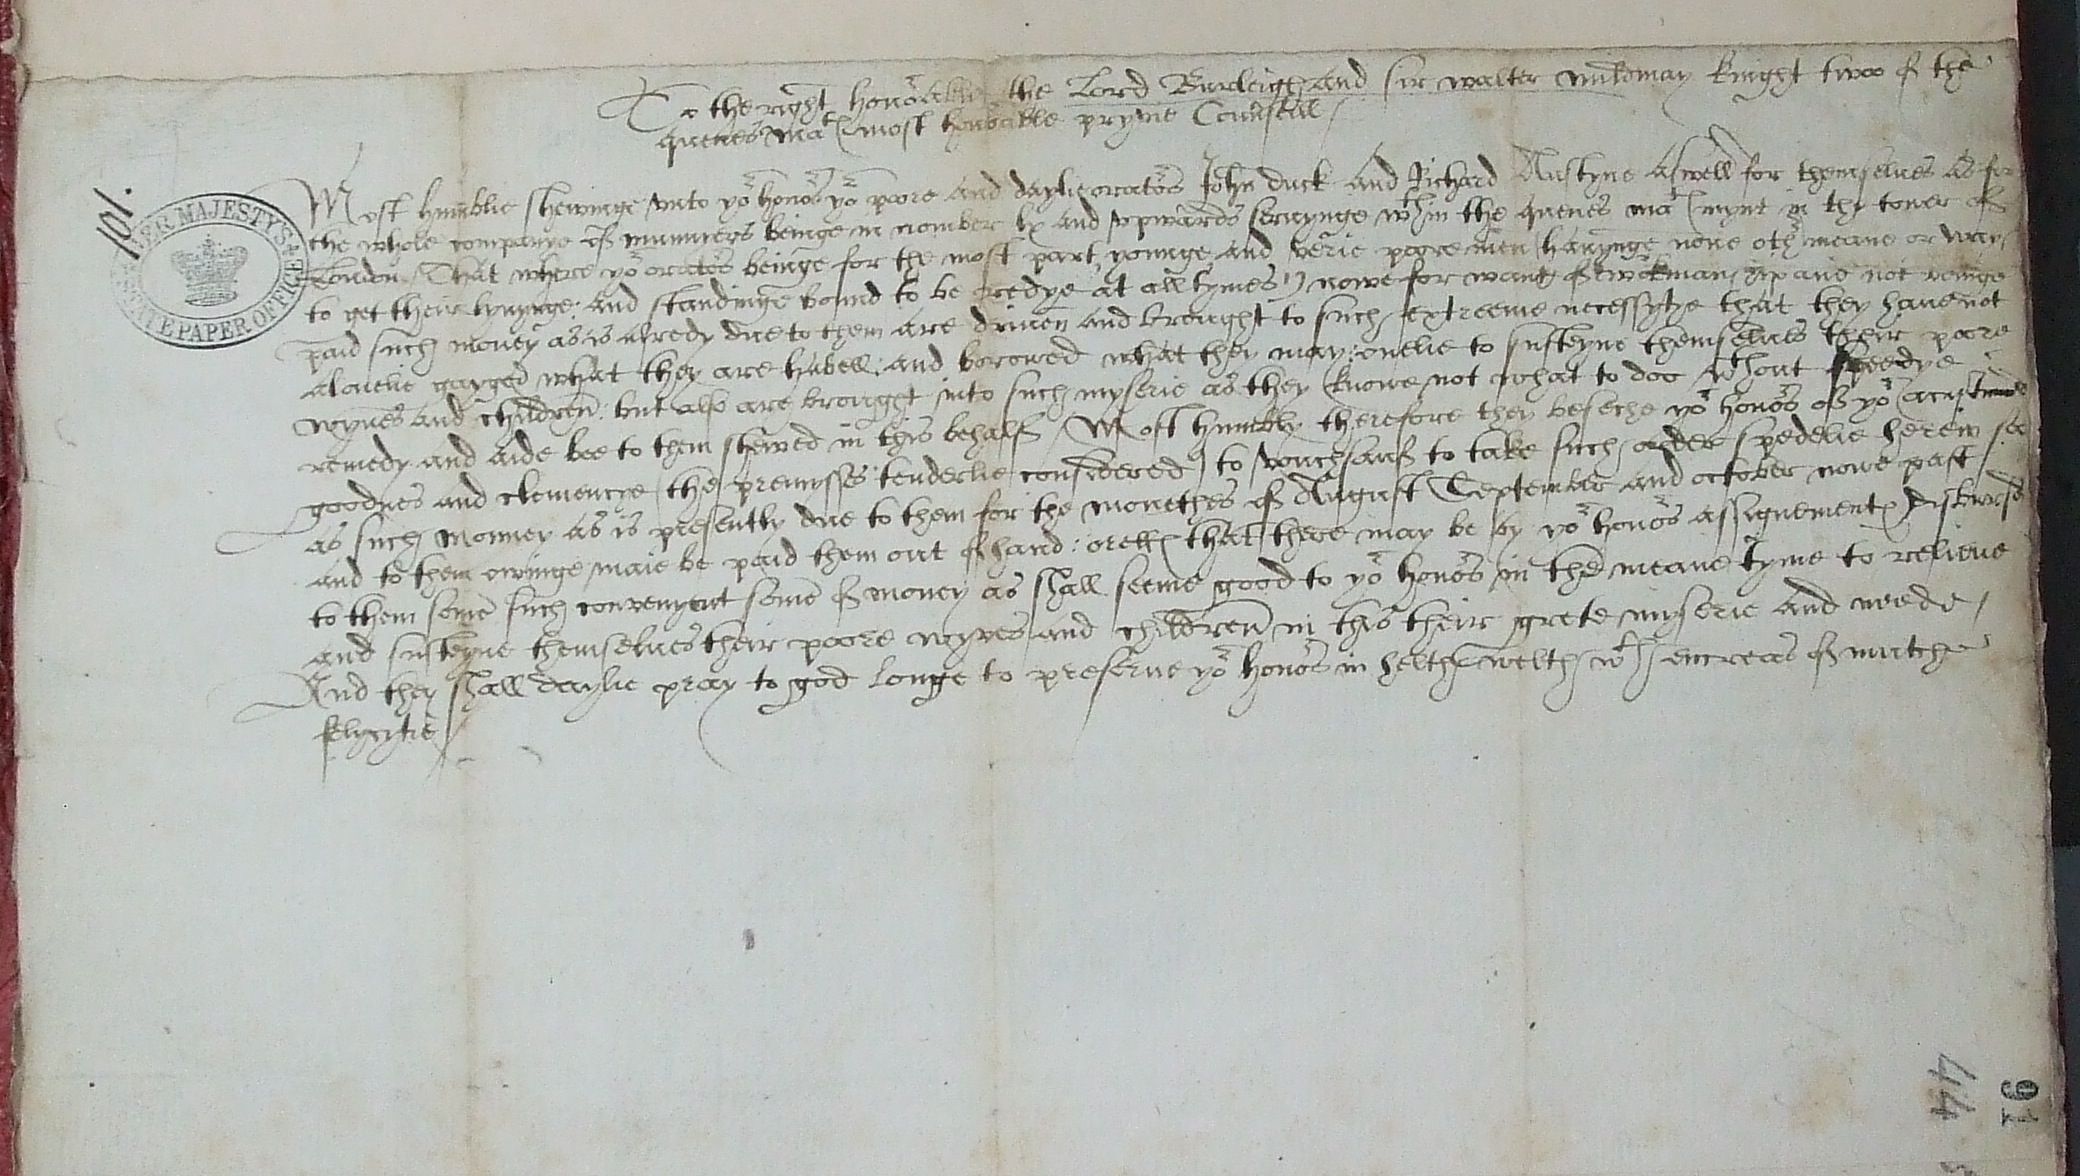 To the right honorable the Lord Burleigh and sir walter mildmay knight twoo of the
quenes mat most honorable pryvie Counsell /
101.
HER MAJESTY'S
STATE PAPER OFFICE
Most humblie shewinge vnto yor honors yor poore and daylie orators John Duck and Richard Austyne aswell for themselues as for
the whole companye of mumiers beinge in nomber lx and vpwards seruynge wthin the quenes mat mynt in the tower of
London / That where yor orators beinge for the most part yonge and verie poore men / hauynge none other meane or way /
to get their lyvynge: and standinge bound to be redye at all tymes / nowe for want of workmanship and not beinge
paid such money as is alredy due to them are driuen and brought to such extreeme necessytye that they haue not
alonelie gayged what they are habell: and borowed what they may: onelie to susteyne themselues their poore
wyues and children: but also are brought into such myserie as they knowe not what to doo wthout speedye
remedy and aide bee to them shewed in this behalf / Most humbly therefore they beseche yor honors of yor acustumed
goodnes and clemencye / the premysses tenderlie considered / to vouchsauf to take such order spedelie herein
as such monney as is presently due to them for the monethes of August September and october nowe past /
and to them owinge maie be paid them out of hand: orelles that there may be by yor honors assignement disbursed
to them some such convenyent some of money as shall seeme good to yor honors in the meane tyme to relieue
and susteyne themselues their poore wyves and children in this their grete myserie and neede /
And they shall daylie pray to god longe to preserue yor honors in helthe welth wth encreas of mutche
felycytie /
44
91